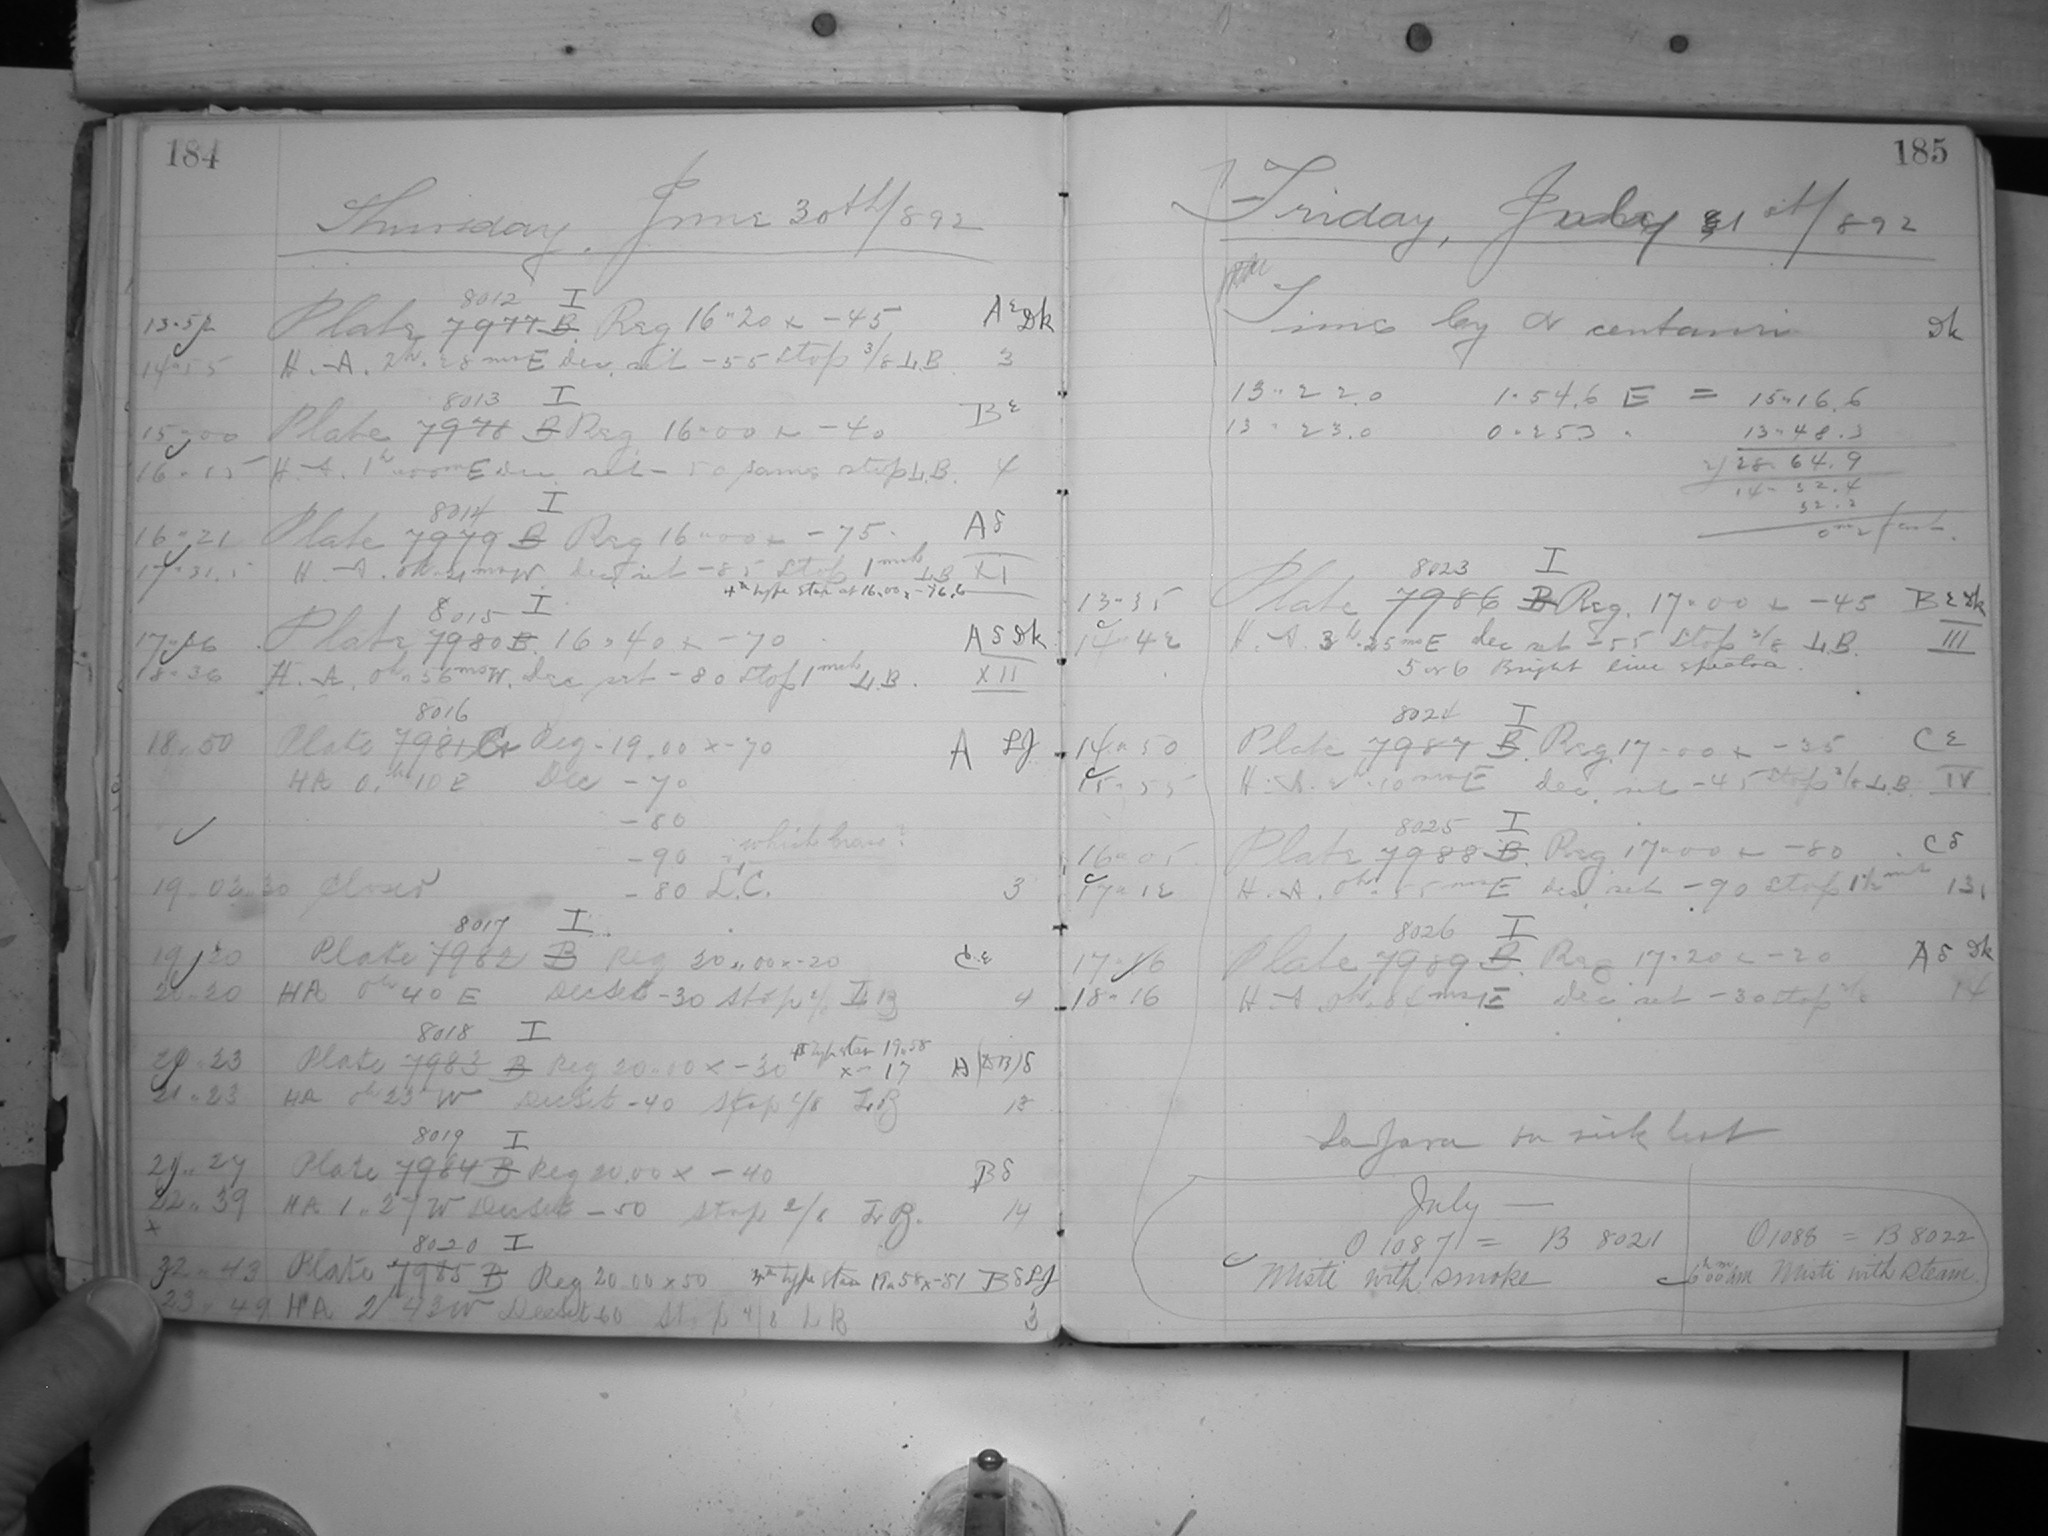 184
Thursday, June 30th 1892
8012 I
13.52 Plate 7977 B. Reg 16.20 x -45 A ε Dk
14.55 H.A. 2h. 28 ms E Dec. set -55 Stop 3/8 L.B. 3
8013 I
15.00 Plate 7978 B Reg. 16.00 x -40 B ε
16.15 H.A. 1h..00m E dec. set -50 same stop L.B. 4
8014 I
16.21 Plate 7979 B Reg 16.00 x -75 A δ
17.31.5 H.A. 0h.21 ms W. dec set -85 Stop 1 inch L.B. XI
4th type star at 16.00 x -76.6
8015 I
17.36 Plate 7980 B. 16.40 x -70 A δ Dk
18.36 H.A. 0h.56 ms W. Dec set -80 Stop 1 inch L.B. XII
8016
18.50 Plate 7981 Reg - 19.00 x -70 A LJ
HA 0.h 10 E Dec -70
-80
-90
19.02.30 Closed -80 L.C. 3
8017 I
19.20 Plate 7982 B Reg 20.00 x -20 C ε
20.20 HA 0h 40 E Dec Set -30 Stop L B 4
8018 I
20.23 Plate 7983 B Reg 20.00 x -30 type star 19.58 x - 17 A (DB) δ
21.23 HA 0h 23 W Dec Set -40 Stop L B 13
8019 I
21.27 Plate 7984 B Reg 20.00 x -40 B δ
22.39 HA 1.27 W Dec Set -50 Stop L B. 14
x
8020 I
22.43 Plate 7985 B Reg 20.00 x 50 type star 19.58 x -51 B δ LJ
23.49 HA 2 43 W Dec Set 60 Stop L B 3
185
Friday, July 1st 1892
Time by α centauri Dk
13.22.0 1.54.6 E = 15.16.6
13.23.0 0.25.3 13.48.3
2) 28.64.9
14.32.4
32.2
0m2 fast.
8023 I
13.35 Plate 7986 B Reg. 17.00 x -45 B ε Dk
14.42 H.A. 3h.25 ms E dec set -55 Stop 3/8 L.B. III
5 or 6 Bright line spectra.
8024 I
14.50 Plate 7987 B. Reg. 17.00 x -35 C ε
15.55 H.A. 2h.10 ms E dec. set -45 Stop 3/8 L.B. IV
8025 I
16.05 Plate 7988 B. Reg 17.00 x -80 C δ
17.12 H.A. 0h.55 ms E dec set -90 Stop 1 1/2 inch 13.
8026 I
17.16 Plate 7989 B. Reg 17.20 x -20 A δ Dk
18.16 H.A. 0h.04 ms E Dec set -30 stop 14
La Jara on sick list
July —
O 1087 = B 8021
Misti with smoke
O 1088 = B 8022
6h 00m AM Misti with steam.